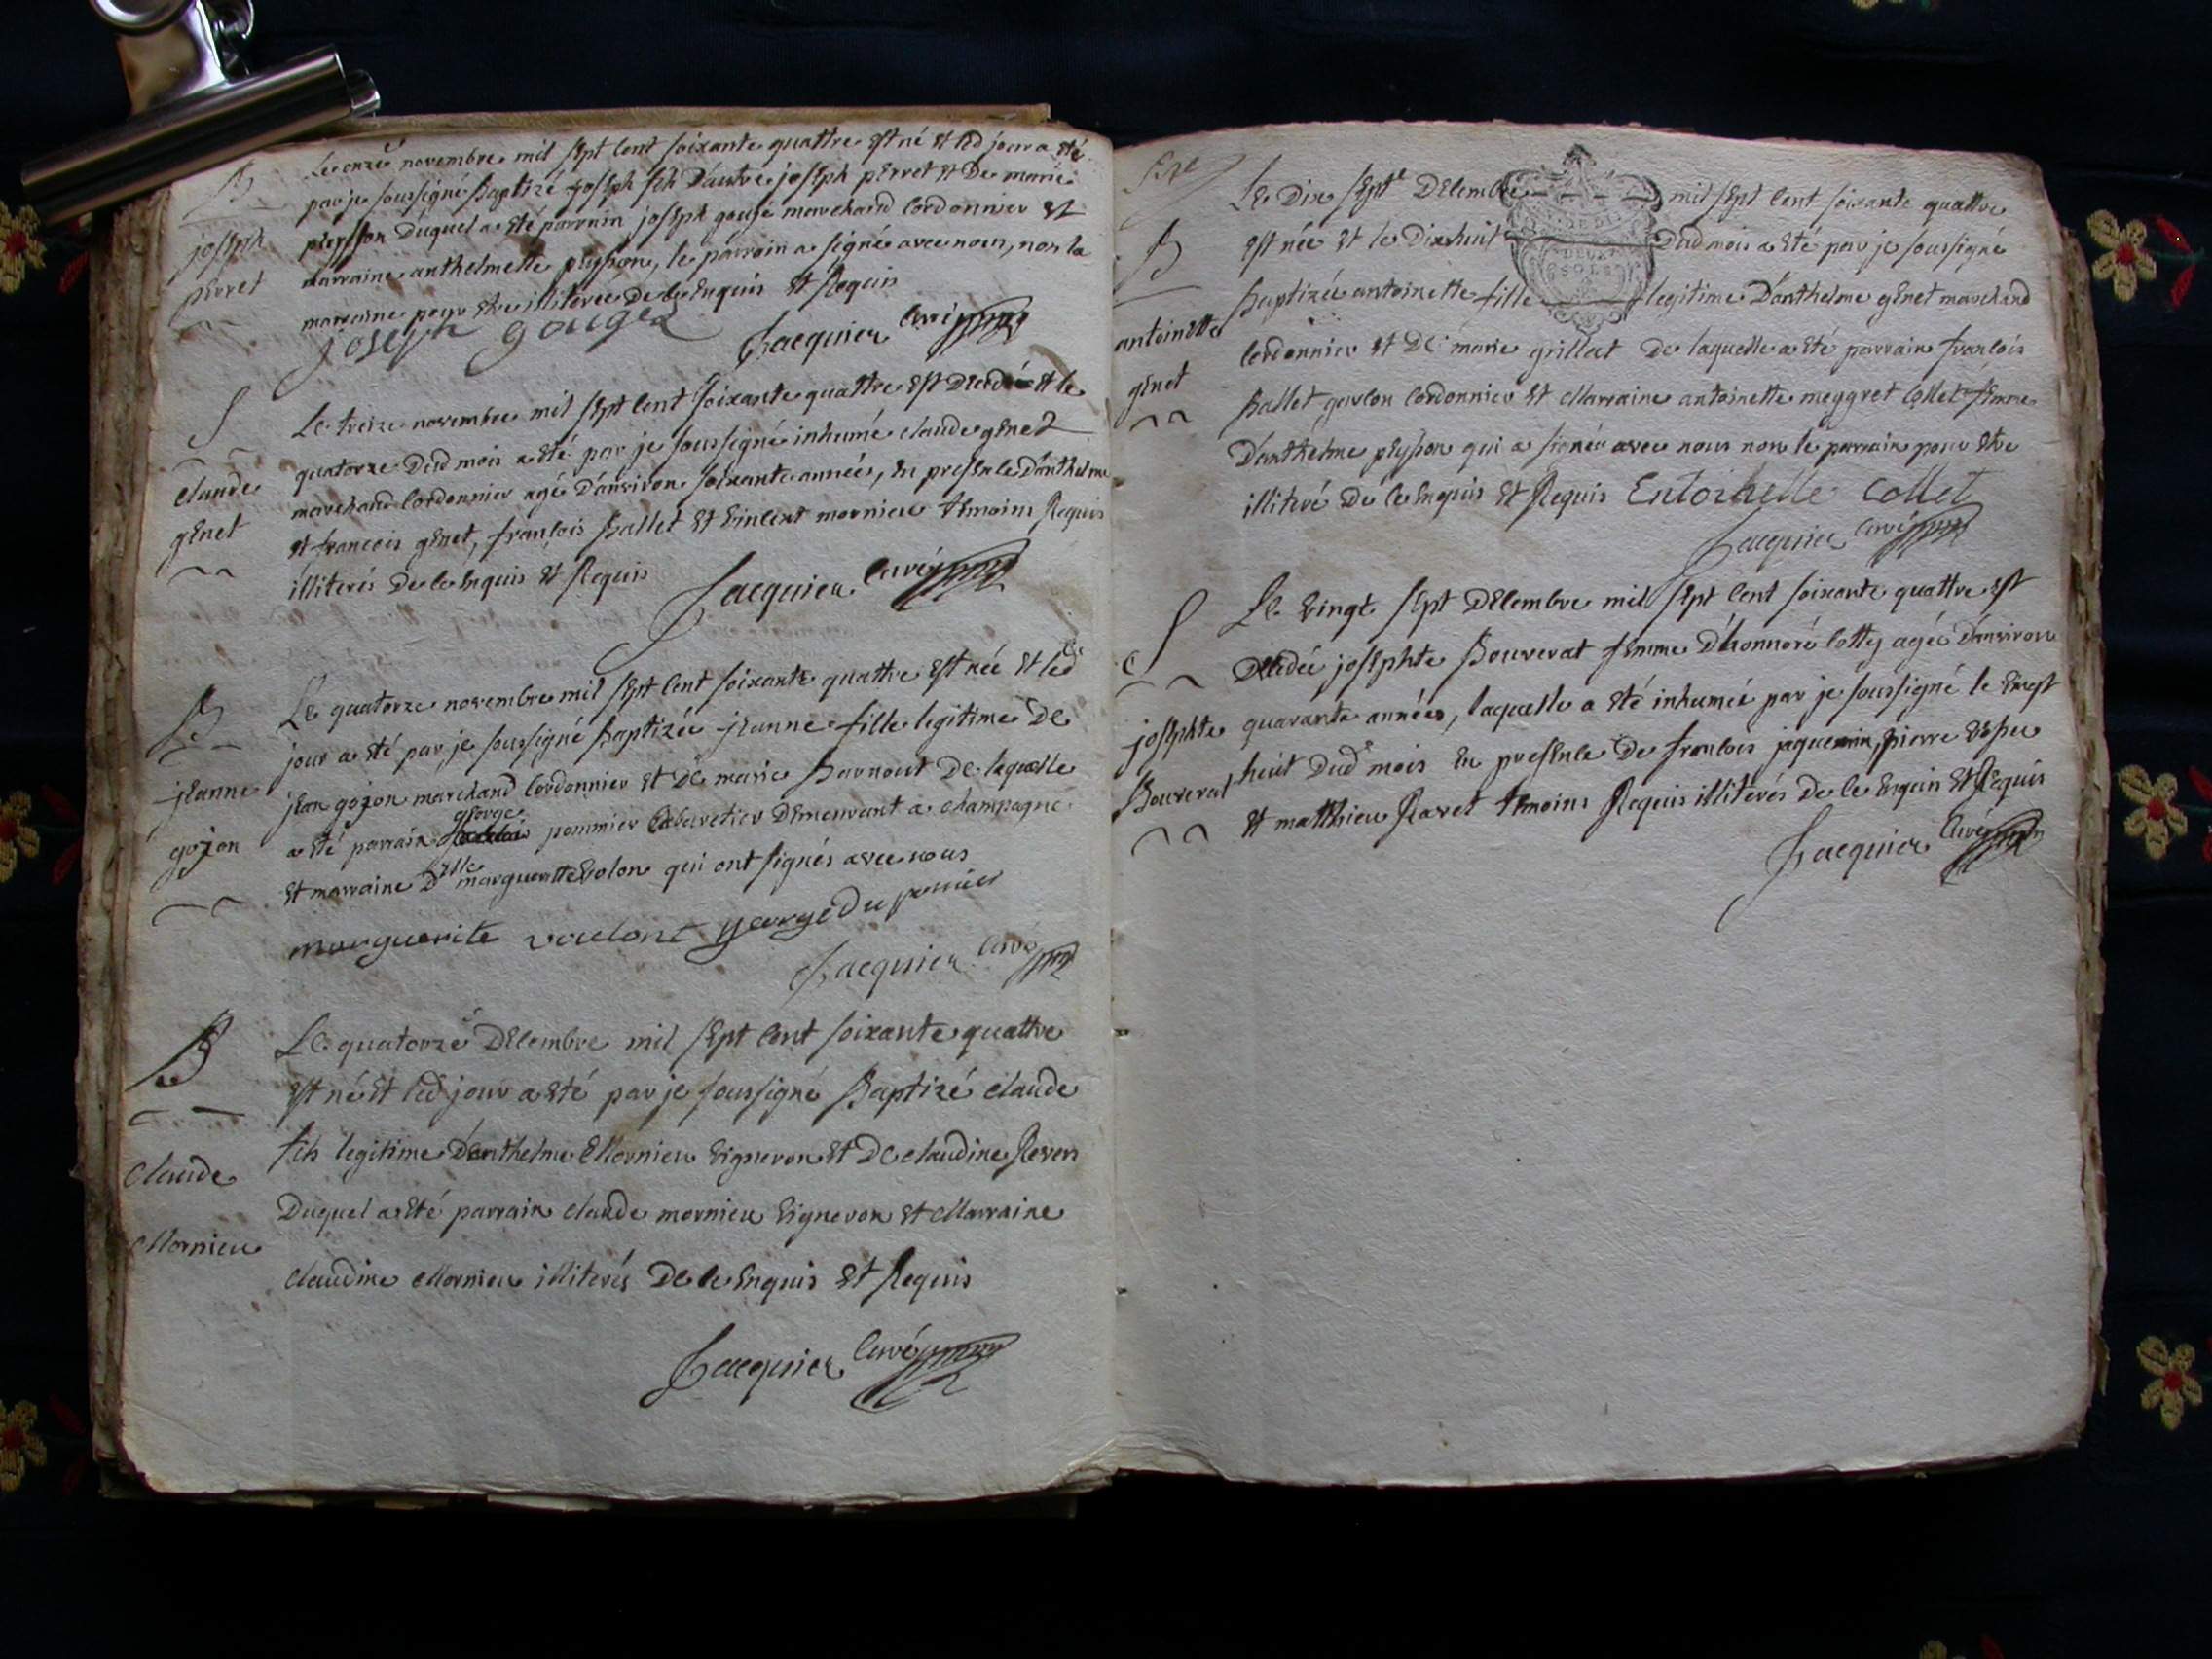 B
joseph
perret
Le onze novembre mil sept cent soixante quattre est né et led jour a eté
par je soussigné Baptizé joseph fils d'autre joseph perret et de marie
peysson Duquel a eté parrain joseph gougé marchand cordonnier et
marraine anthelmette peysson, le parrain a signé avec nous, non la
marraine pour etre illiterée de ce Enquis et Requis
joseph gouget
Jacquier curé
S
claude
genet
Le treize novembre mil sept cent soixante quattre est decedé et le
quatorze dud mois a eté par je soussigné inhumé claude genet
marchand cordonnier agé d'anviron soixante années, en presence d'anthelme
et francois genet, francois Ballet et vincent mornieu temoins Requis
illiterés de ce Enquis et Requis
Jacquier curé
B
jeanne
gojon
Le quatorze novembre mil sept cent soixante quattre est née et led
jour a eté par je soussigné Baptizée jeanne fille legitime de
jean gojon marchand cordonnier et de marie Barnout de laquelle
a eté parrain george pommier cabaretier demeurant a champagne
et marraine dlle margueritte volon qui ont signés avec nous
marguerite voulont george du pomier
Jacquier curé
B
claude
Mornieu
Le quatorze decembre mil sept cent soixante quattre
est né et led jour a eté par je soussigné Baptizé claude
fils legitime d'anthelme Mornieu vigneron et de claudine Revers
Duquel a eté parrain claude mornieu vigneron et Marraine
claudine Mornieu illiterés de ce Enquis et Requis
Jacquier curé
B
antoinette
genet
Le dix sept decembre mil sept cent soixante quattre
est née et le dixhuit dud mois a eté par je soussigné
Baptizée antoinette fille legitime d'anthelme genet marchand
cordonnier et de marie grillet de laquelle a eté parrain francois
Ballet garcon cordonnier et Marraine antoinette meygret collet femme
d'anthelme peysson qui a signée avec nous non le parrain pour etre
illiteré de ce enquis et Requis Entoinette collet
Jacquier curé
S
josephte
Bouverat
Le vingt sept decembre mil sept cent soixante quattre est
decedée josephte Bouverat femme d'honnoré cotty agée d'anviron
quarante années, laquelle a eté inhumée par je soussigné le vingt
huit dud mois en presence de francois jaquemin, pierre
et matthieu Ravet temoins Requis illiterés de ce Enquis et Requis
Jacquier curé